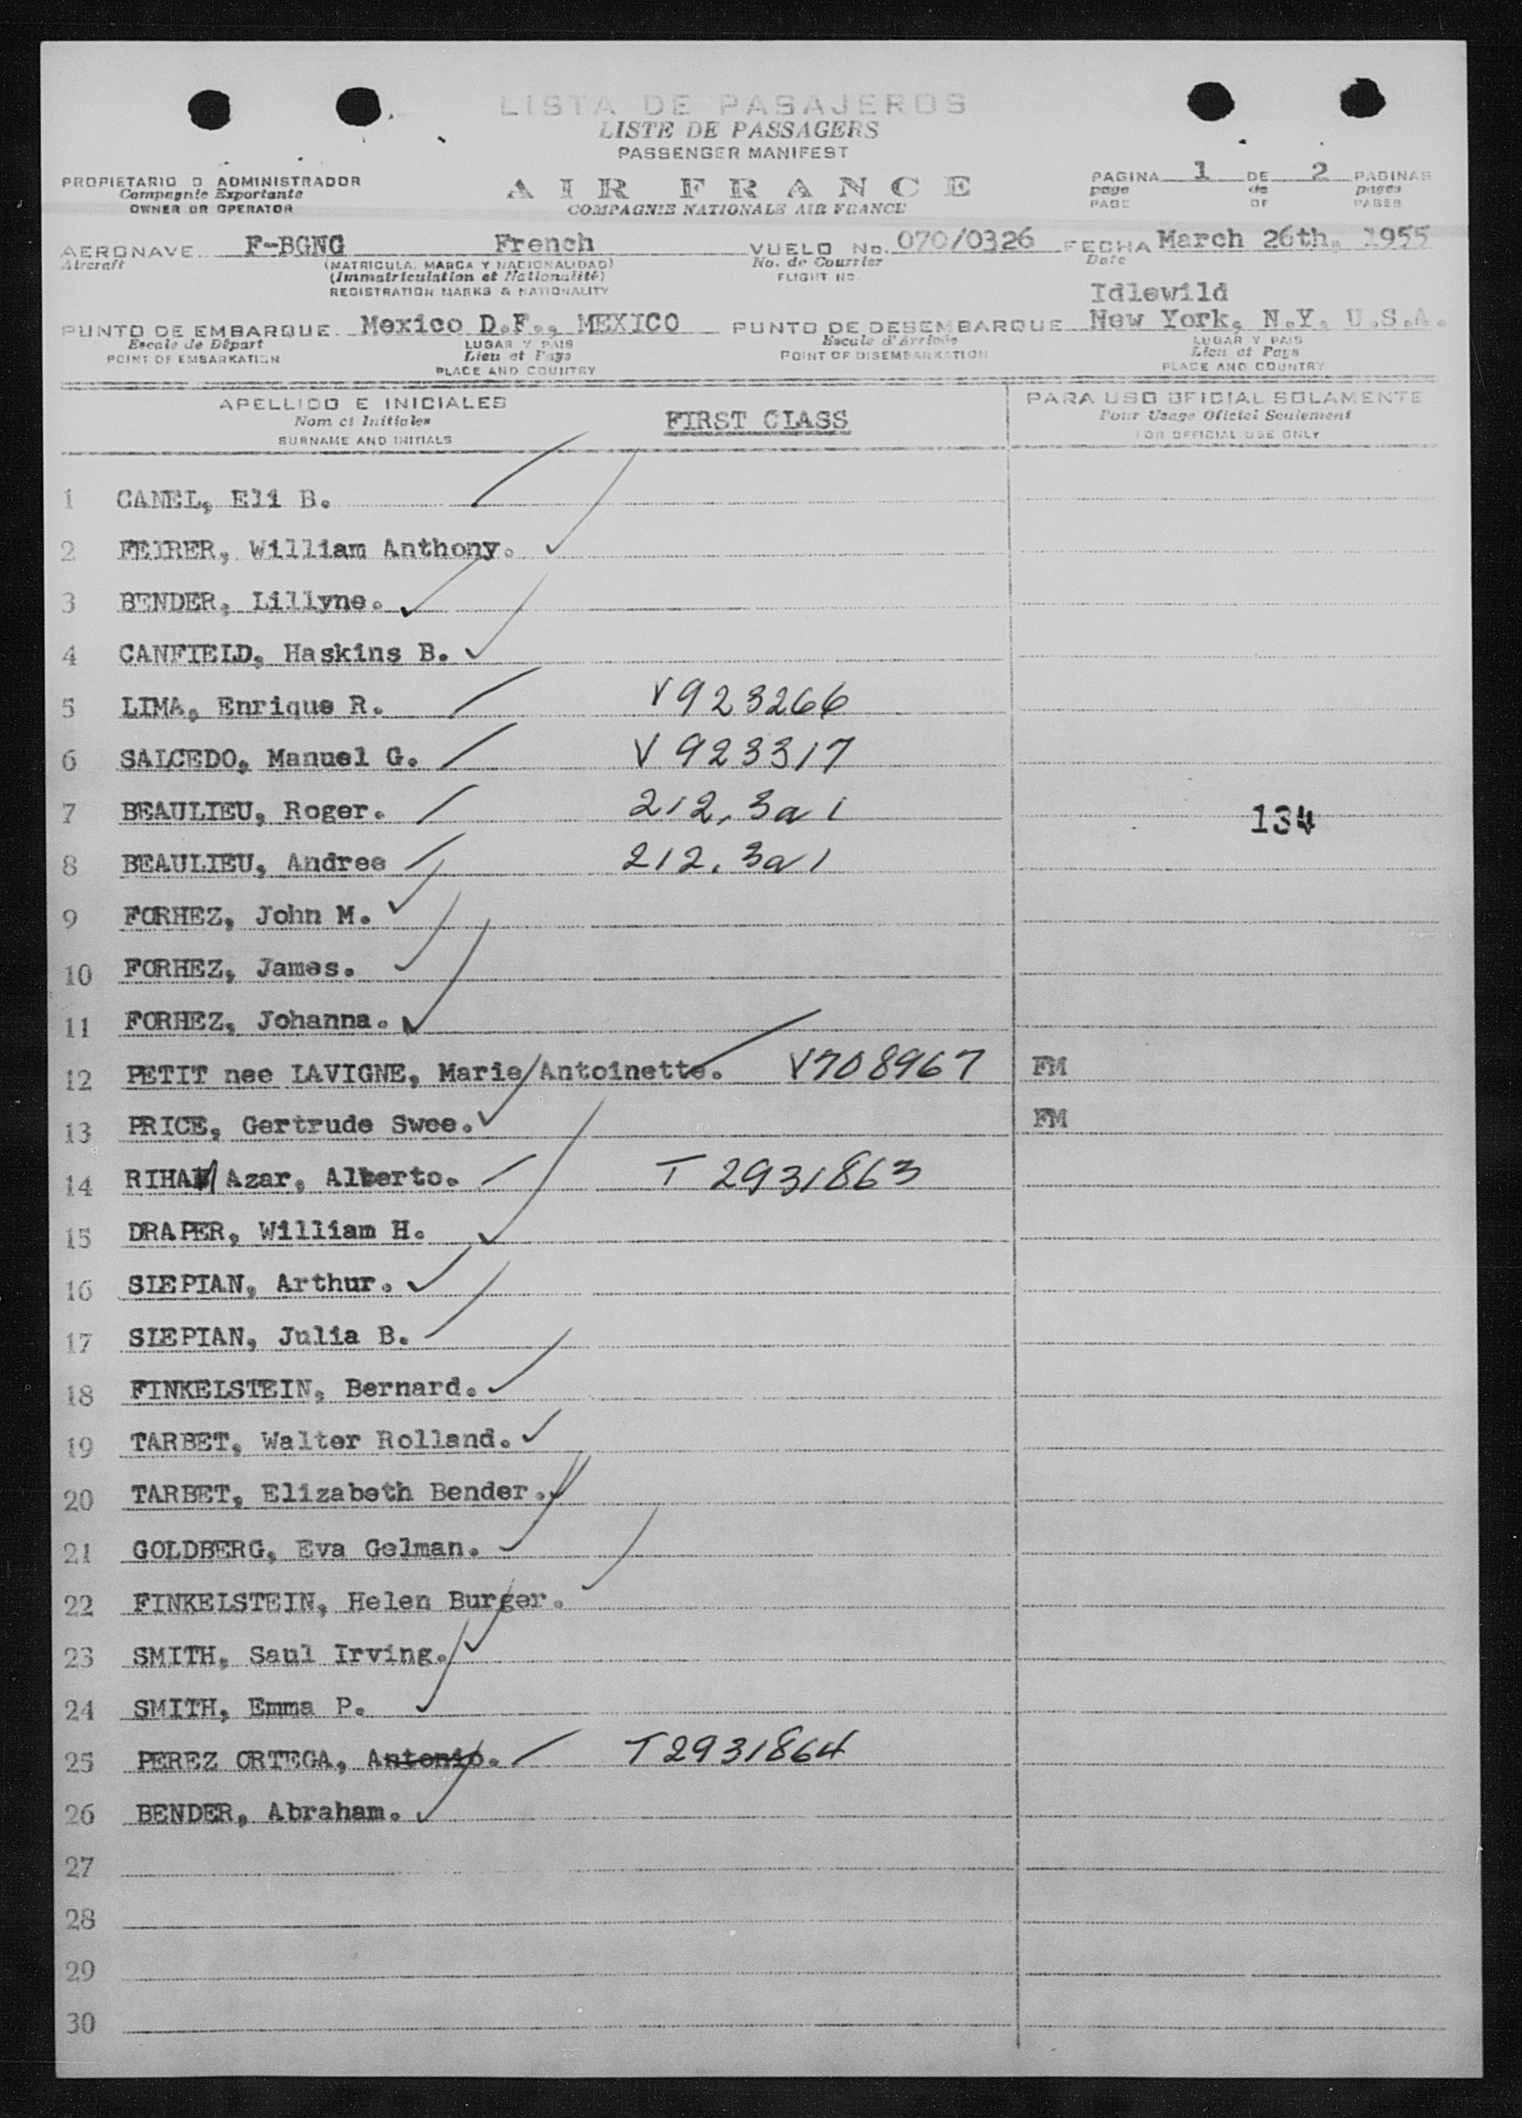 LISTA DE PASAJEROS
LISTE DE PASSAGERS
PASSENGER MANIFEST
PROPIETARIO O ADMINISTRADOR
Compagnie Exportante
OWNER OR OPERATOR
AIR FRANCE
COMPAGNIE NATIONALE AIR FRANCE
PAGINA 1 DE 2 PAGINAS
page de pages
PAGE OF PAGES
AERONAVE F-BGNG French VUELO No. 070/0326 FECHA March 26th, 1955
Aircraft (MATRICULA, MARCA Y NACIONALIDAD) No. de Courrier Date
(Immatriculation et Nationalité) FLIGHT NO
REGISTRATION MARKS & NATIONALITY
Idlewild
PUNTO DE EMBARQUE Mexico D.F., MEXICO PUNTO DE DESEMBARQUE New York, N.Y. U.S.A.
Escale de Départ LUGAR Y PAIS Escale d'Arrivée LUGAR Y PAIS
POINT OF EMBARKATION Lieu et Pays POINT OF DISEMBARKATION Lieu et Pays
PLACE AND COUNTRY PLACE AND COUNTRY
APELLIDO E INICIALES FIRST CLASS PARA USO OFICIAL SOLAMENTE
Nom et Initiales Pour Usage Oficiel Seulement
SURNAME AND INITIALS FOR OFFICIAL USE ONLY
1 CANEL, Eli B.
2 FEIRER, William Anthony.
3 BENDER, Lillyne.
4 CANFIELD, Haskins B.
5 LIMA, Enrique R. V923266
6 SALCEDO, Manuel G. V 923317
7 BEAULIEU, Roger. 212.3a1 134
8 BEAULIEU, Andree 212.3a1
9 FORHEZ, John M.
10 FORHEZ, James.
11 FORHEZ, Johanna.
12 PETIT nee LAVIGNE, Marie Antoinette. V708967 FM
13 PRICE, Gertrude Swee. FM
14 RIHAN Azar, Alberto. T 2931863
15 DRAPER, William H.
16 SIEPIAN, Arthur.
17 SIEPIAN, Julia B.
18 FINKELSTEIN, Bernard.
19 TARBET, Walter Rolland.
20 TARBET, Elizabeth Bender.
21 GOLDBERG, Eva Gelman.
22 FINKELSTEIN, Helen Burger.
23 SMITH, Saul Irving.
24 SMITH, Emma P.
25 PEREZ ORTEGA, Antonio. T2931864
26 BENDER, Abraham.
27
28
29
30